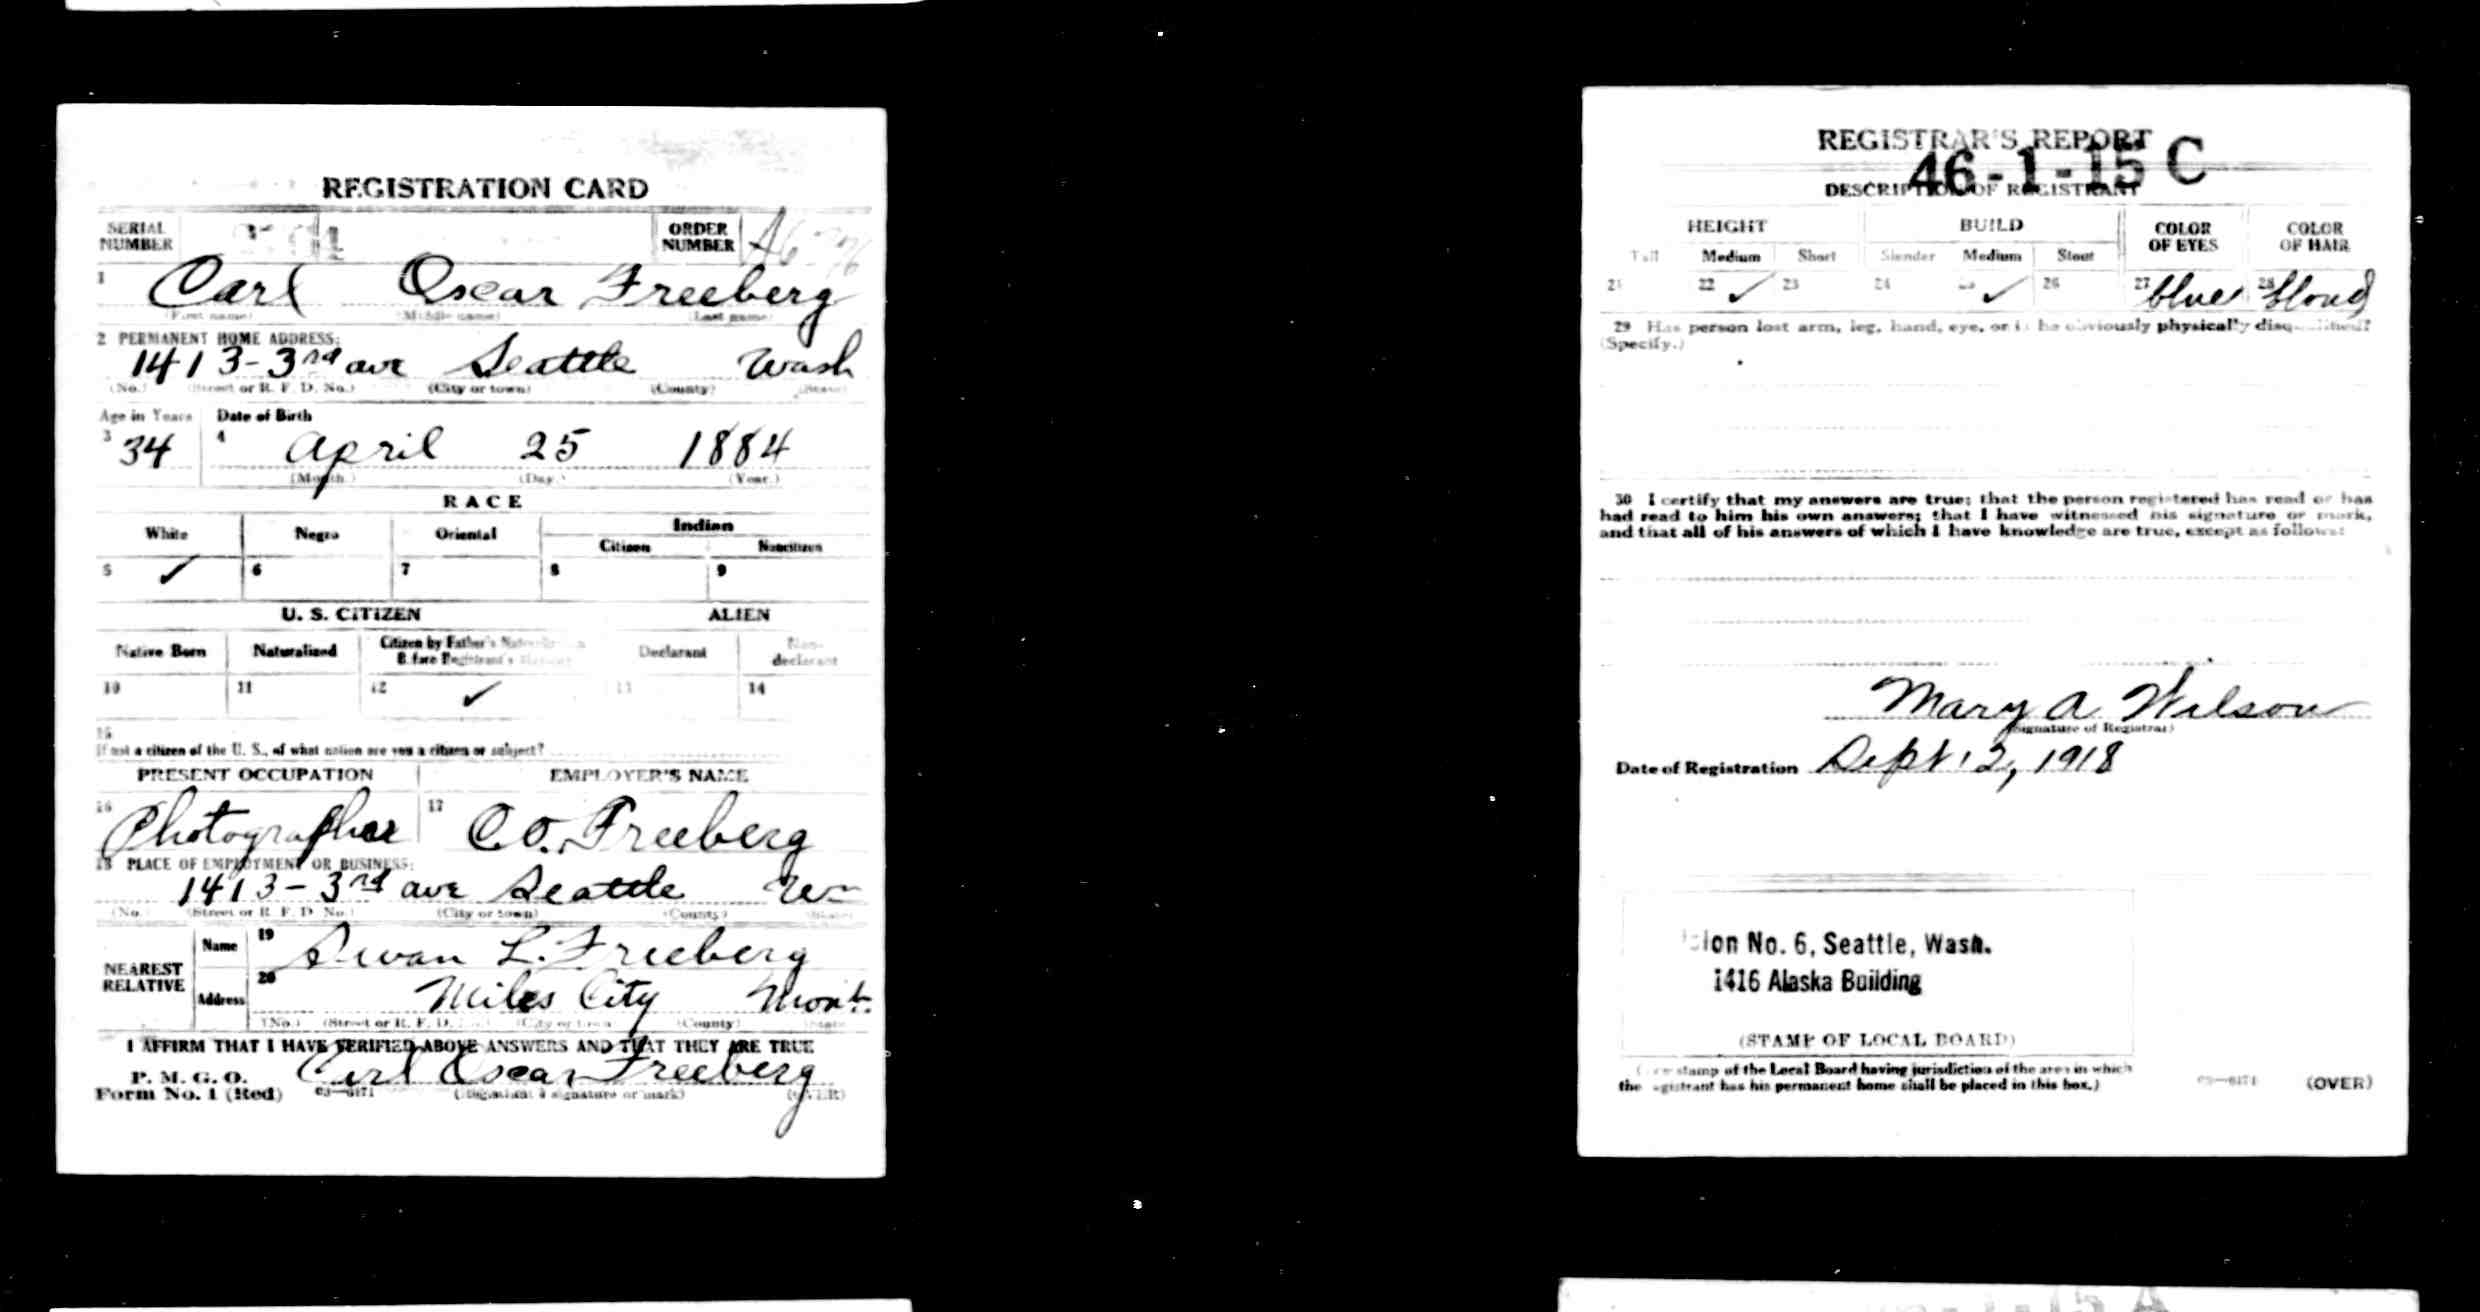 REGISTRATION CARD
SERIAL NUMBER
ORDER NUMBER
1 Carl Oscar Freeberg
(First name) (Middle name) (Last name)
2 PERMANENT HOME ADDRESS:
1413-3rd ave Seattle Wash
(No.) (Street or R. F. D. No.) (City or town) (County) (State)
Age in Years Date of Birth
3 34 4 April 25 1884
(Month.) (Day.) (Year.)
RACE
White Negro Oriental Indian
Citizen Noncitizen
5 ✓ 6 7 8 9
U. S. CITIZEN ALIEN
Native Born Naturalized Citizen by Father's Before Registrant's Declarant Non-declarant
10 11 12 ✓ 13 14
15
If not a citizen of the U. S., of what nation are you a citizen or subject?
PRESENT OCCUPATION EMPLOYER'S NAME
16 Photographer 17 C.O. Freeberg
18 PLACE OF EMPLOYMENT OR BUSINESS:
1413-3rd ave Seattle Wn
(No.) (Street or R. F. D. No.) (City or town) (County) (State)
NEAREST RELATIVE
Name 19 Swan L. Freeberg
Address 20 Miles City Mont.
(No.) (Street or R. F. D. No.) (City or town) (County) (State)
I AFFIRM THAT I HAVE VERIFIED ABOVE ANSWERS AND THAT THEY ARE TRUE
P. M. G. O.
Form No. 1 (Red) 03—6171 Carl Oscar Freeberg
(Registrant's signature or mark) (OVER)
REGISTRAR'S REPORT
46-1-15 C
DESCRIPTION OF REGISTRANT
HEIGHT BUILD COLOR OF EYES COLOR OF HAIR
Tall Medium Short Slender Medium Stout
21 22 ✓ 23 24 25 ✓ 26 27 blue 28 blond
29 Has person lost arm, leg, hand, eye, or is he obviously physically disqualified?
(Specify.)
30 I certify that my answers are true; that the person registered has read or has
had read to him his own answers; that I have witnessed his signature or mark,
and that all of his answers of which I have knowledge are true, except as follows:
Mary A Wilson
(Signature of Registrar)
Date of Registration Sept 12, 1918
No. 6, Seattle, Wash.
1416 Alaska Building
(STAMP OF LOCAL BOARD)
stamp of the Local Board having jurisdiction of the area in which
the registrant has his permanent home shall be placed in this box.)
03—6171 (OVER)